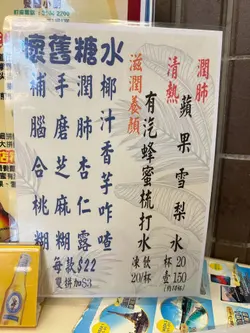 懷舊糖水
補腦合桃糊
手磨芝麻糊
潤肺杏仁露
椰汁香芋咋喳
每款$22
雙拼加$3
滋潤養顏
有汽蜂蜜梳打水
凍飲
20/杯
清熱
潤肺
蘋果雪梨水
杯20
壺150